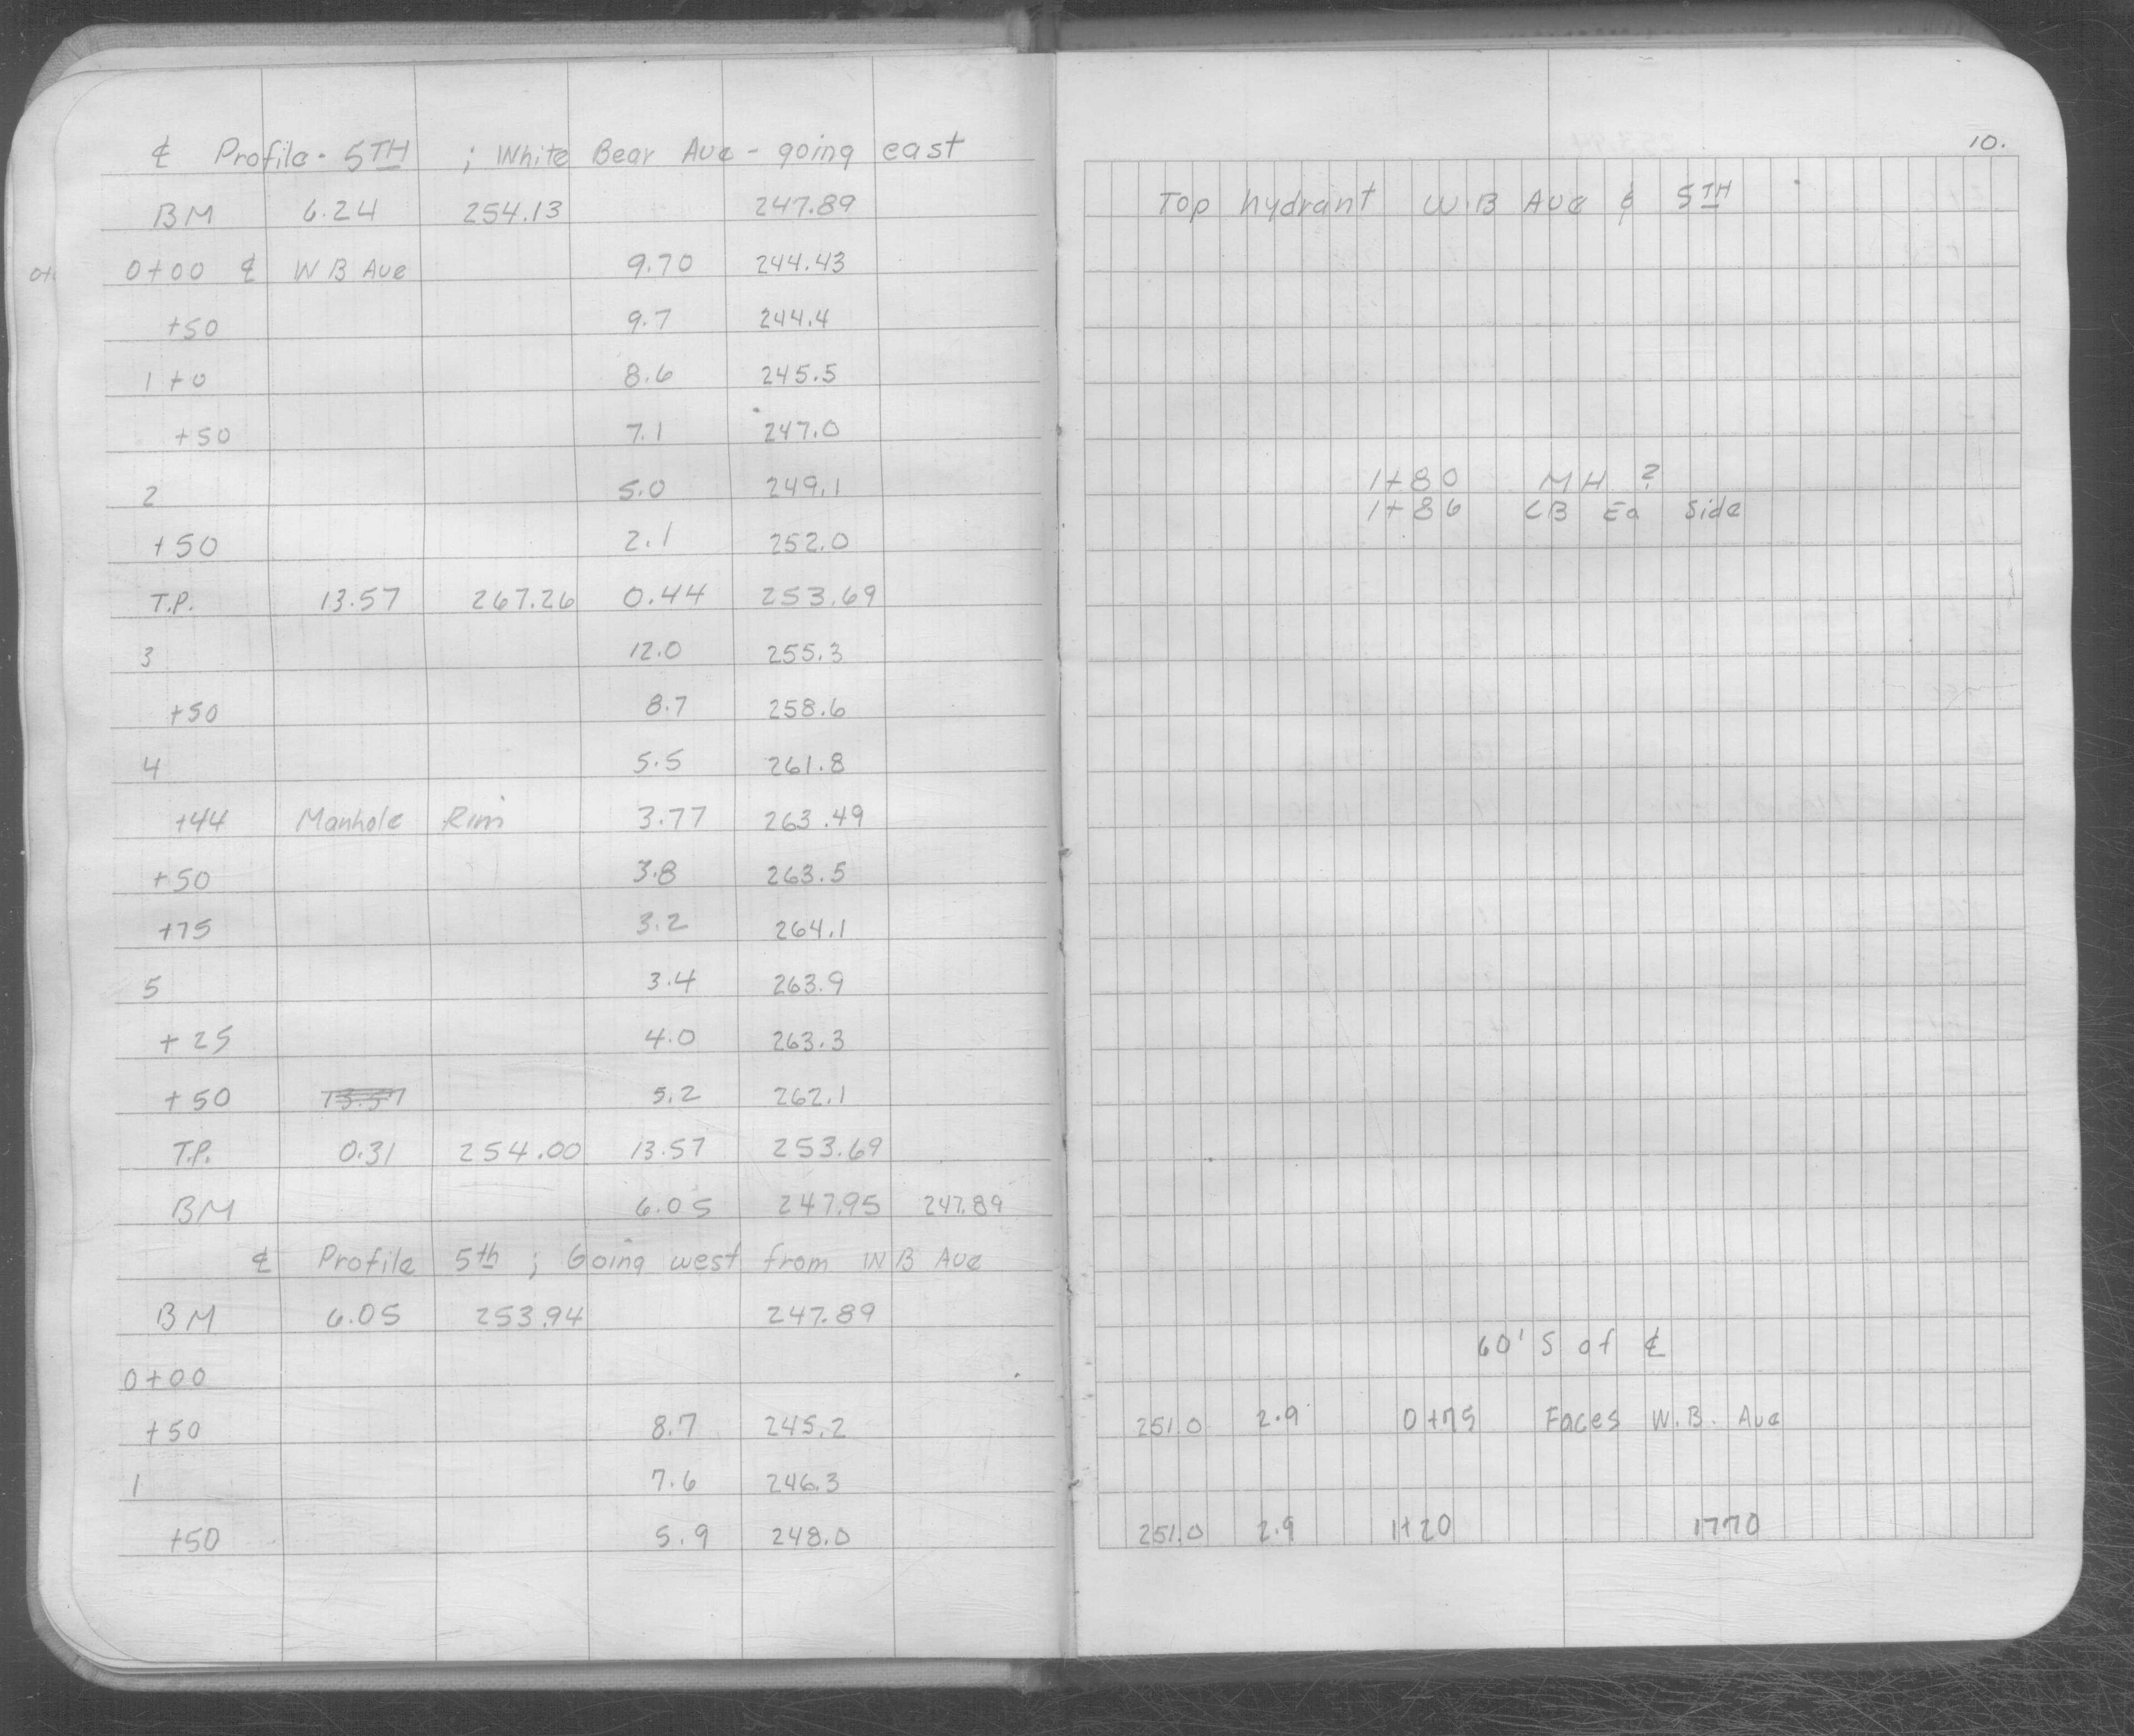 ₵ Profile - 5TH ; White Bear Ave - going east
BM 6.24 254.13 247.89
0+00 ₵ W B Ave 9.70 244.43
+50 9.7 244.4
1+0 8.6 245.5
+50 7.1 247.0
2 5.0 249.1
+50 2.1 252.0
T.P. 13.57 267.26 0.44 253.69
3 12.0 255.3
+50 8.7 258.6
4 5.5 261.8
+44 Manhole Rim 3.77 263.49
+50 3.8 263.5
+75 3.2 264.1
5 3.4 263.9
+25 4.0 263.3
+50 13.57 5.2 262.1
T.P. 0.31 254.00 13.57 253.69
BM 6.05 247.95 247.89
₵ Profile 5th ; Going west from W B Ave
BM 6.05 253.94 247.89
0+00
+50 8.7 245.2
1 7.6 246.3
+50 5.9 248.0
10.
Top hydrant W.B Ave & 5TH
1+80 MH ?
1+86 CB Ea Side
60' S of ₵
251.0 2.9 0+75 Faces W.B. Ave
251.0 2.9 1+20 1770